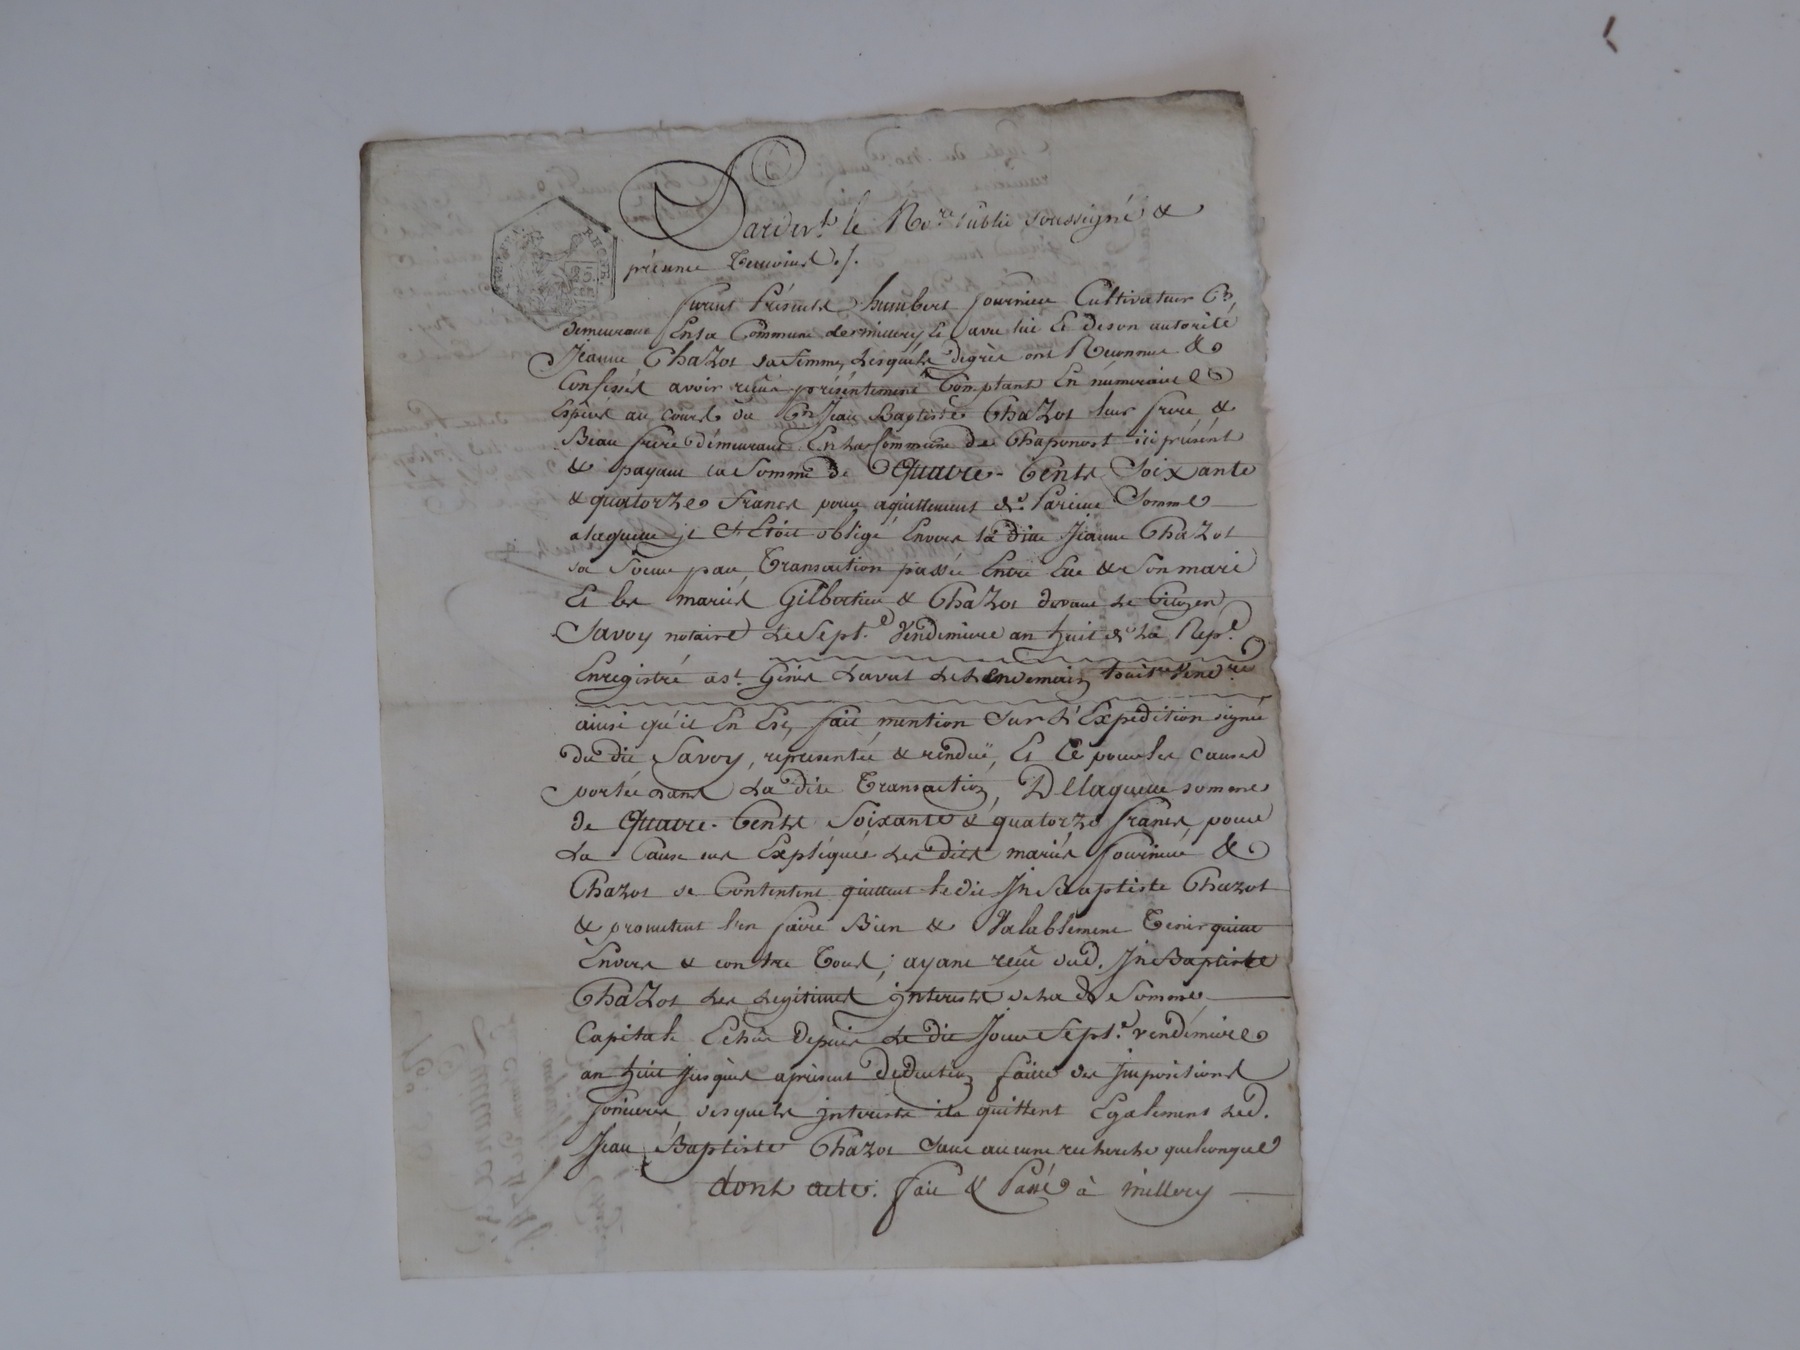 Pardev.t le No.re Public soussigné &
présence temoins ./.
furent Présents humbert fournier Cultivateur
demeurant En la Commune de millery Et avec lui Et de son autorité
Jeanne Chazot sa femme, Lesquels degrès ont Reconnus &
Confessés avoir reçus présentement Comptant En numeraire
Espèces au cours du C.en Jean Baptiste Chazot leur frere &
Beau frere demeurant En la Commune de Chaponost ici présent
& payant la Somme de Quatre-Cents Soixante
& quatorze francs pour aquittement de Pareille Somme
a laquelle il S'Etoit obligé Envers la dite Jeanne Chazot
sa Soeur par Transaction passée Entre Elle & Son mari
Et les mariés Gilbertier & Chazot devant le Citoyen
Savoy notaire le Sept.e Vendemiere an huit de la Rep.e
Enregistré a S.t Genis Laval le Lendemain huit Vend.re
ainsi qu'il En Est fait mention Sur L'Expedition signée
du dit Savoy, representée & rendüe, Et Ce pour les causes
portées dans La dite Transaction, De laquelle somme
de Quatre-Cents Soixante & quatorze francs, pour
La Cause sus Expliquée Les dits mariés fournier &
Chazot se Contentent quittent le dit Jn Baptiste Chazot
& promettent l'en faire Bien & Valablement Tenir quitte
Envers & contre Tous; ayant reçu dud. Jn Baptiste
Chazot Les Legitimes jnterests de la de Somme
Capitale Echus Depuis Le dit Jour Sept.e vendémiere
an huit Jusques apresent Deduction faite des Jmpositions
foncieres, desquels jnterests ils quittent Egalement Led.
Jean Baptiste Chazot Sans aucune recherche quelconque
dont acte. fait & Passé à millery